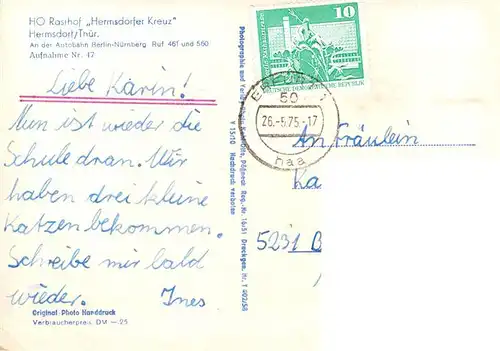 HO Rasthof „Hermsdorfer Kreuz"
Hermsdorf/Thür.
An der Autobahn Berlin-Nürnberg Ruf 461 und 560
Aufnahme Nr. 47
Liebe Karin!
Nun ist wieder die
Schule dran. Wir
haben drei kleine
Katzen bekommen.
Schreibe mir bald
wieder. Ines
Original Photo Handdruck
Verbraucherpreis DM -.25
Photographie und
Pößneck Reg.-Nr. 16/51 Druckgen.-Nr. T 602/58
V 15/10 Nachdruck verboten
10
DEUTSCHE DEMOKRATISCHE REPUBLIK
50
26.-5.75-17
haa
An Fräulein
Ka
5231 B